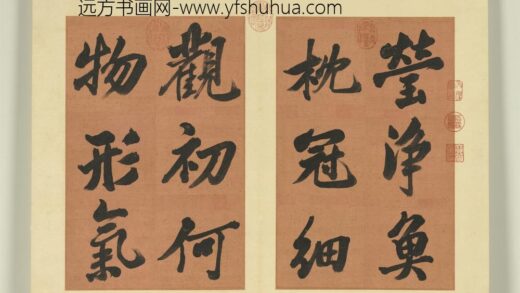 远方书画网-www.yfshuhua.com
瑩淨魚
枕冠細
觀初何
物形氣